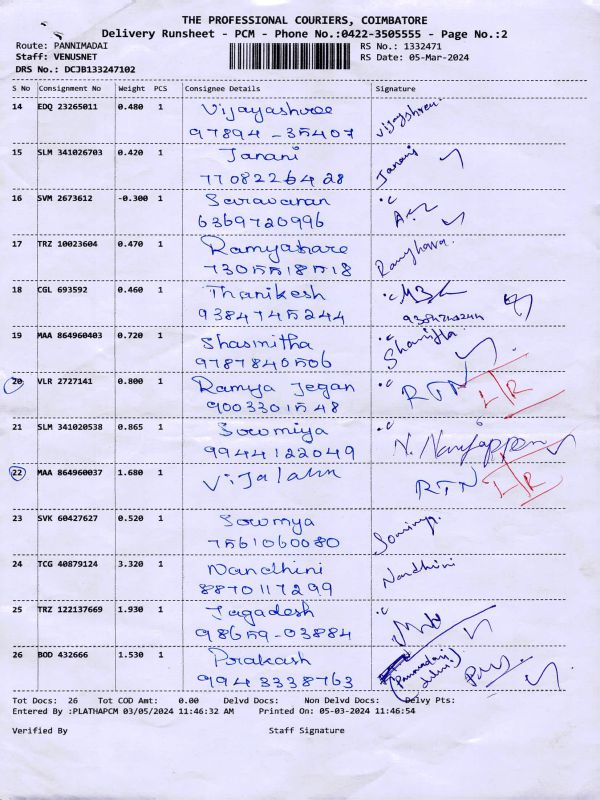 THE PROFESSIONAL COURIERS, COIMBATORE
Delivery Runsheet - PCM - Phone No.:0422-3505555 - Page No.:2
Route: PANNIMADAI
Staff: VENUSNET
DRS No.: DCJB133247102
RS No.: 1332471
RS Date: 05-Mar-2024
S No Consignment No Weight PCS Consignee Details Signature
14 EDQ 23265011 0.480 1 Vijayashree
97894 - 35407
15 SLM 341026703 0.420 1 Janani Janani
7708226428
16 SVM 2673612 -0.300 1 Saravanan
6369720996
17 TRZ 10023604 0.470 1
18 CGL 693592 0.460 1 Thanikesh
9384745244
19 MAA 864960403 0.720 1 Shasmitha
9787840506
20 VLR 2727141 0.800 1 Ramya Jegan RTN
9003301548
21 SLM 341020538 0.865 1 Sowmiya
9944122049
22 MAA 864960037 1.680 1 RTN
23 SVK 60427627 0.520 1 Sowmya
7561060080
24 TCG 40879124 3.320 1 Nandhini Nandhini
8870117299
25 TRZ 122137669 1.930 1 Jagadesh
98659-03884
26 BOD 432666 1.530 1 Prakash
9943338763
Tot Docs: 26 Tot COD Amt: 0.00 Delvd Docs: Non Delvd Docs: Delvy Pts:
Entered By :PLATHAPCM 03/05/2024 11:46:32 AM Printed On: 05-03-2024 11:46:54
Verified By Staff Signature